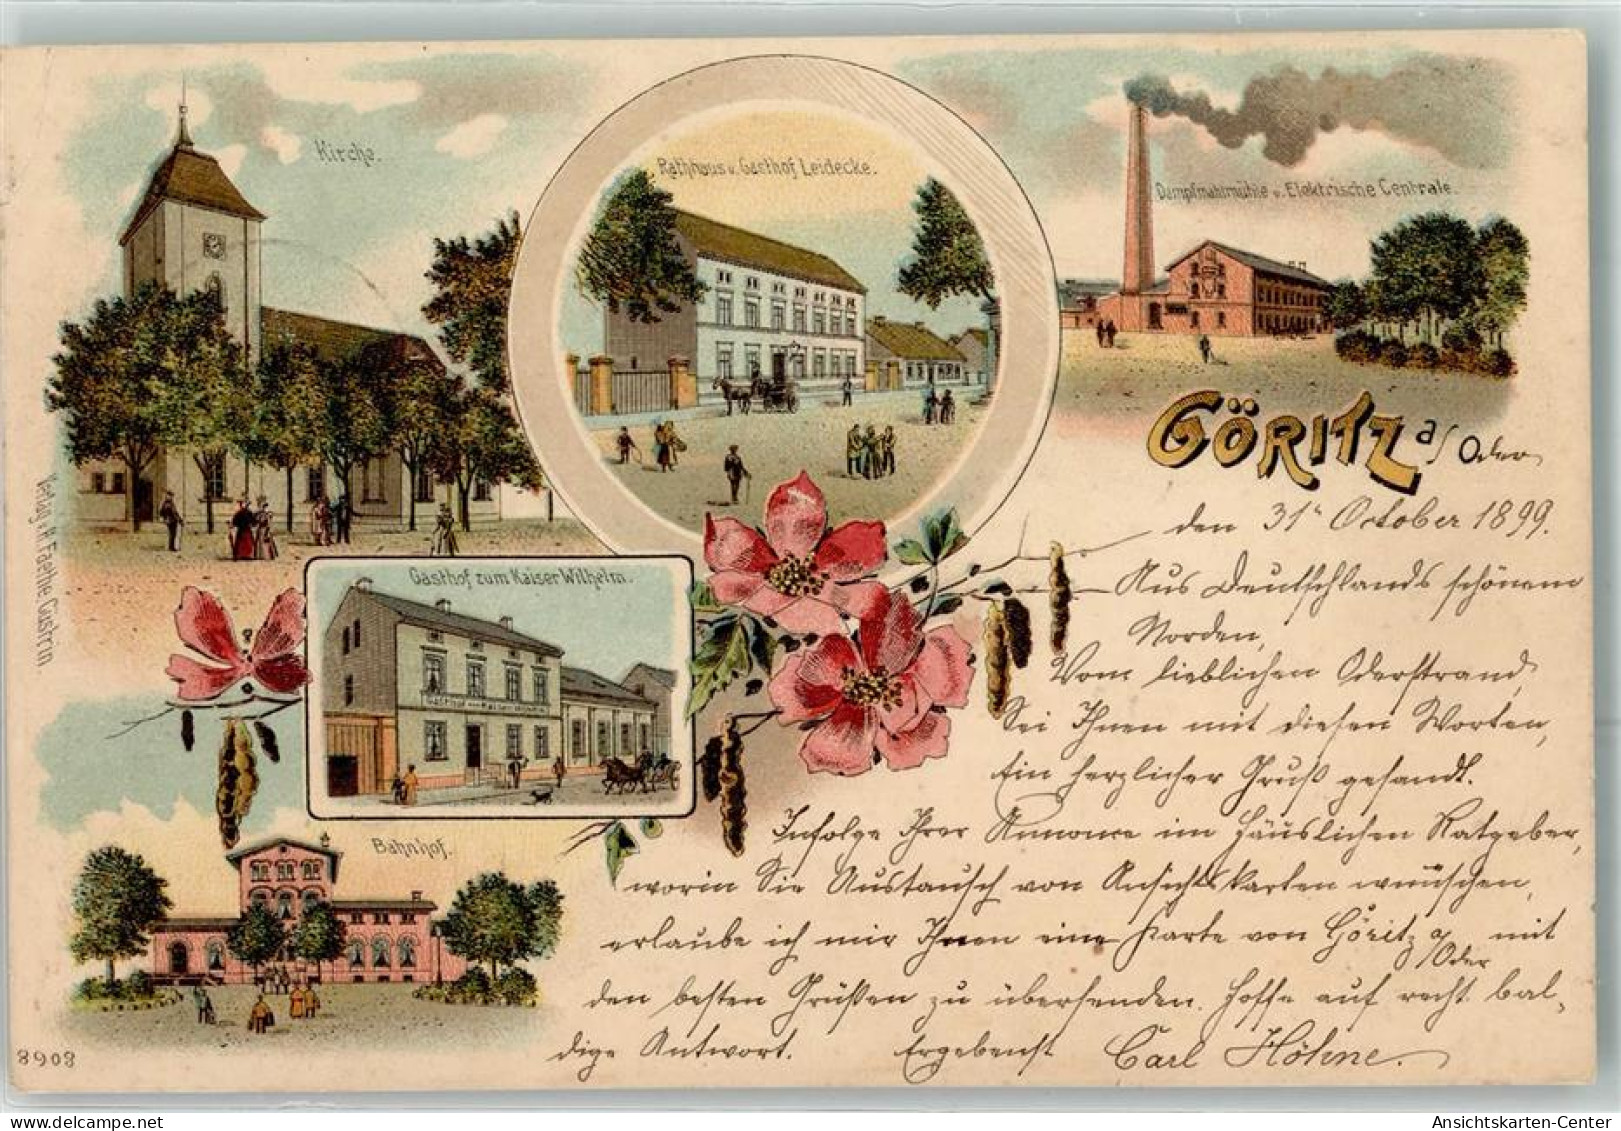 Kirche.
Rathhaus u. Gasthof Leidecke.
Dampfmahlmühle u. Elektrische Centrale.
GÖRITZ a/ Oder
den 31ᵗ October 1899.
Aus Deutschlands schönem
Norden,
Vom lieblichen Oderstrand,
Sei Ihnen mit diesen Worten,
Ein herzlicher Gruß gesandt.
Infolge Ihrer Annonce im Häuslichen Ratgeber,
worin Sie Austausch von Ansichtskarten wünschen,
erlaube ich mir Ihnen eine Karte von Göritz a/Oder mit
den besten Grüßen zu übersenden. Hoffe auf recht bal-
dige Antwort. Ergebenst Carl Höhne.
Gasthof zum Kaiser Wilhelm.
GASTHOF zum KAISER WILHELM
Bahnhof.
Verlag v. H. Faethe, Cüstrin.
8903
Ansichtskarten-Center